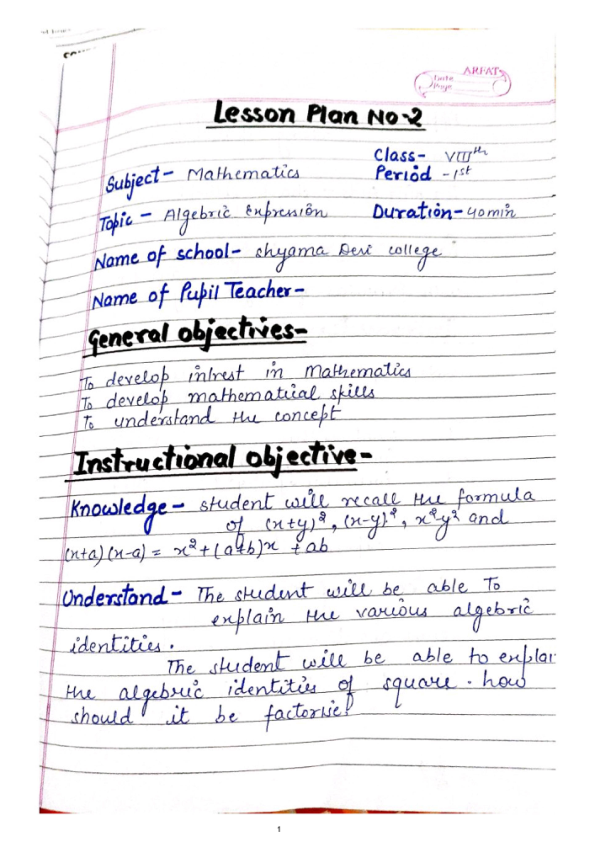 ARFAT
Date
Page
Lesson Plan No-2
Class- VIIIth
Subject- Mathematics
Period -1st
Topic - Algebric Expression
Duration-40min
Name of school- shyama Devi college
Name of Pupil Teacher-
General objectives-
To develop intrest in Mathematics
To develop mathematical skills
To understand the concept
Instructional objective-
Knowledge- student will recall the formula
of (x+y)², (x-y)², x²y² and
(x+a)(x-a) = x²+(a+b)x + ab
Understand- The student will be able To
explain the various algebric
identities.
The student will be able to explai
the algebric identities of square. how
should it be factorise?
1